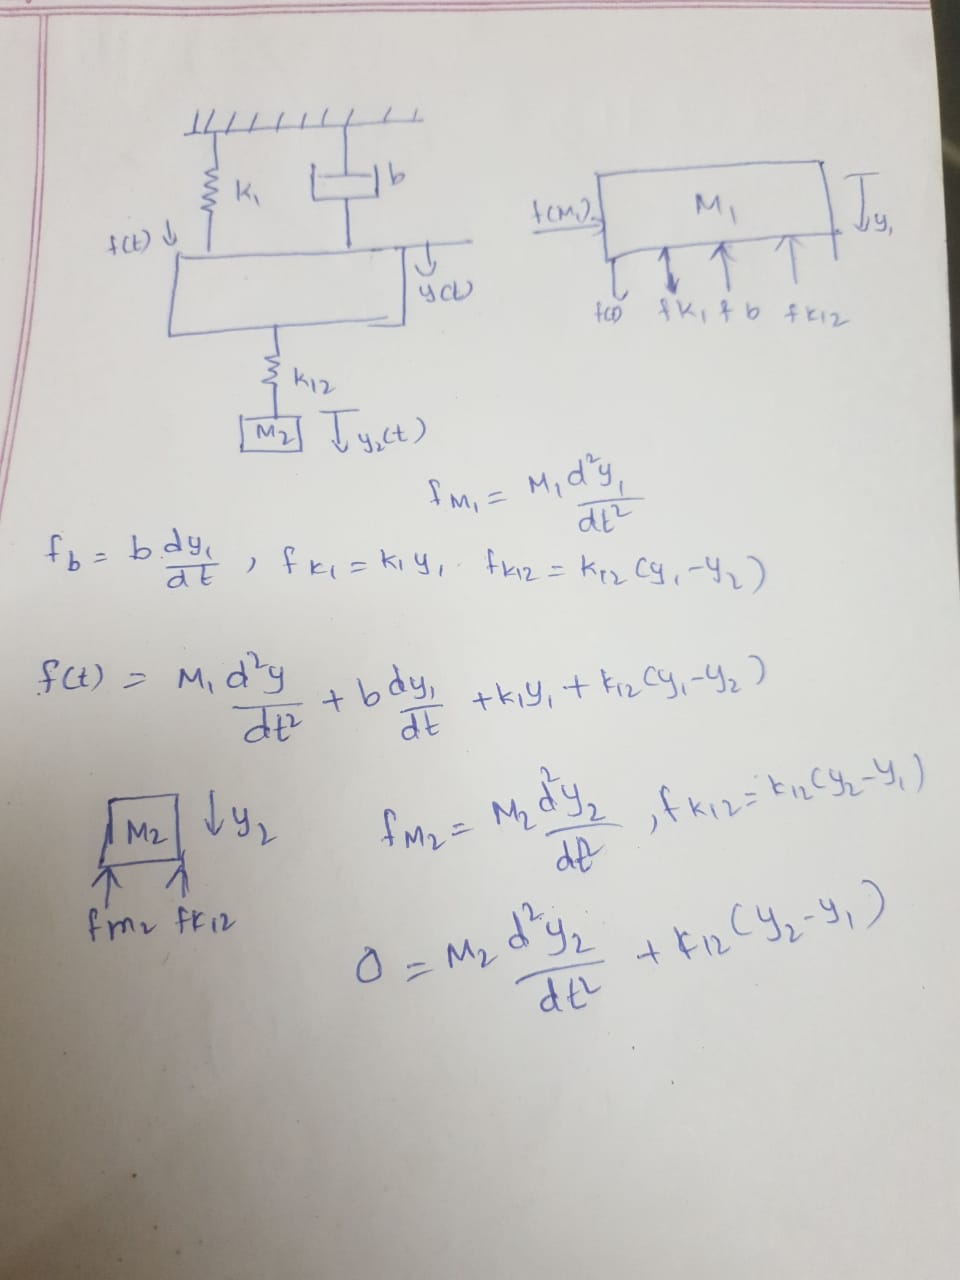 K₁
b
f(t)
y(t)
K12
M2
y₂(t)
f(M₁)
M₁
y₁
f(t) fK₁ fb fK12
fM₁ = M₁ d²y₁/dt²
fb = b dy₁/dt , fK₁ = K₁y₁ . fK12 = K12 (y₁-y₂)
f(t) = M₁ d²y/dt² + b dy₁/dt + K₁y₁ + K12 (y₁-y₂)
M2
y₂
fm2 fK12
fM2 = M2 d²y₂/dt² , fK12 = K12 (y₂-y₁)
0 = M2 d²y₂/dt² + K12 (y₂-y₁)